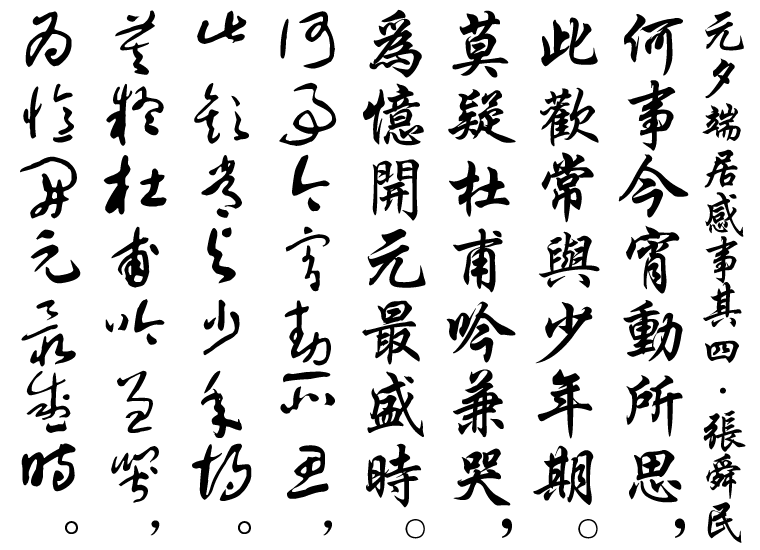 元夕端居感事其四·張舜民
何事今宵動所思，
此歡常與少年期。
莫疑杜甫吟兼哭，
為憶開元最盛時。
何事今宵動所思，
此歡常與少年期。
莫疑杜甫吟兼哭，
為憶開元最盛時。